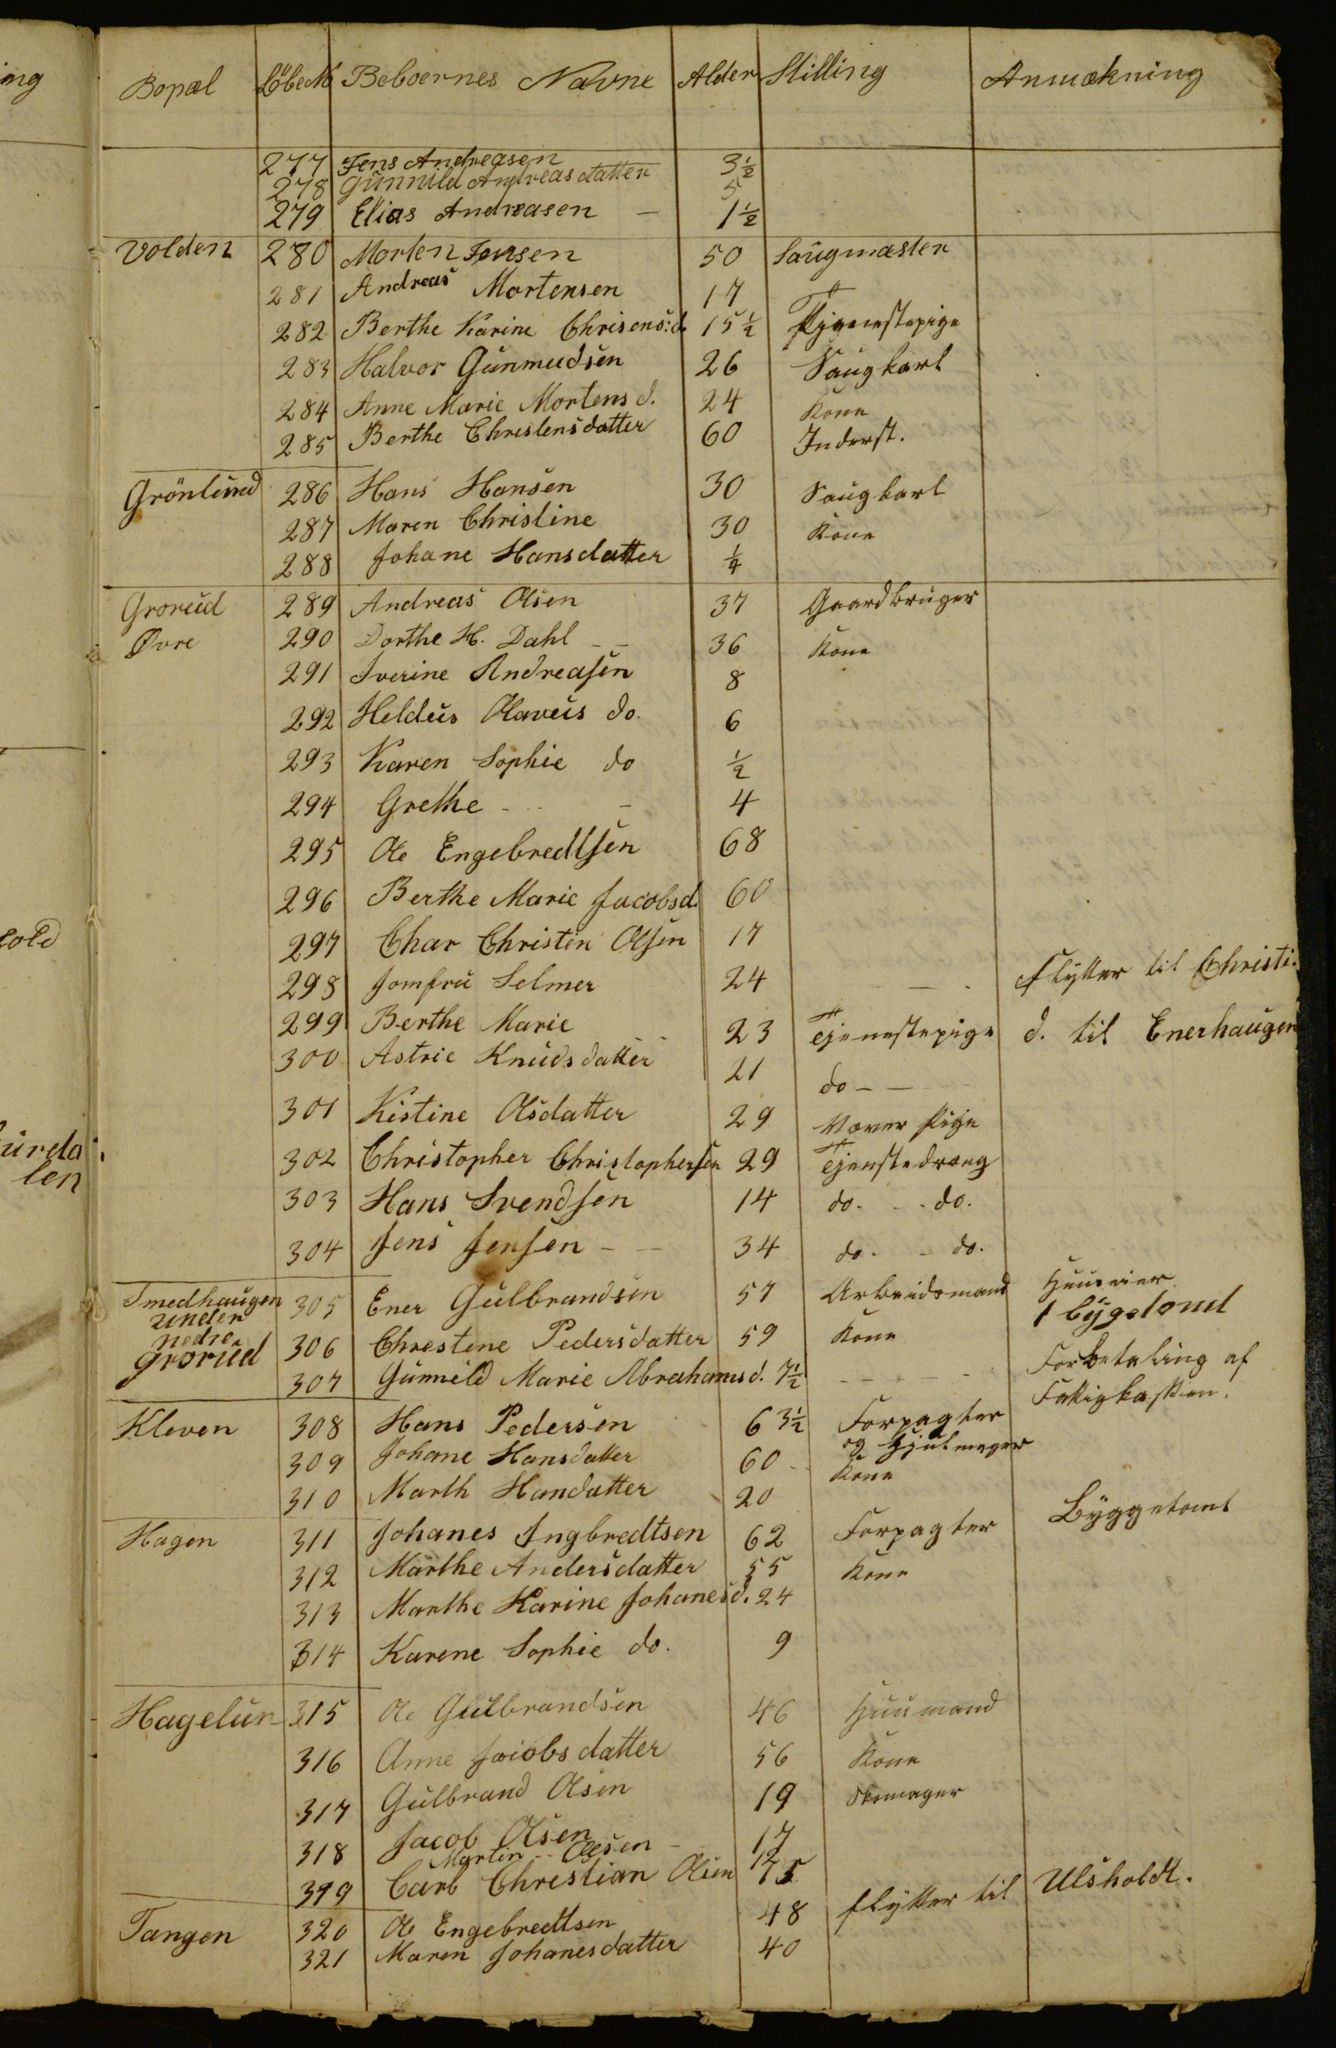 Bopæl LöbeN Beboernes Navne Alder Stilling Anmækning
277 Jens Andreasen 3½
278 Gunnild Andreasdatter 5
279 Elias Andreasen - 1½
Volden 280 Morten Jensen 50 Saugmæster
281 Andreas Mortensen 17
282 Berthe Karine Chrisens:d. 15½ Tjenestepige
283 Halvor Gunmudsen 26 Saugkarl
284 Anne Marie Mortens d. 24 Kone
285 Berthe Chrestensdatter 60 Inderst.
Grönlund 286 Hans Hansen 30 Saugkarl
287 Maren Christine 30 Kone
288 Johane Hansdatter ¼
Grorud 289 Andreas Olsen 37 Gaardbruger
Øvre 290 Dorthe H. Dahl 36 Kone
291 Iverine Andreasen 8
292 Heldus Olaveus do. 6
293 Karen Sophie do ½
294 Grethe - - 4
295 Ole Engebredtsen 68
296 Berthe Marie Jacobsd. 60
297 Char Christen Olsen 17
298 Jomfru Selmer 24 - flytter til Christi.
299 Berthe Marie 23 Tjenestepige d. til Enerhaugen
300 Astrie Knudsdatter 21 do -
301 Kistine Olsdatter 29 Væver Pige
302 Christopher Christophersen 29 Tjenstedreng
303 Hans Svendsen 14 do. - do.
304 Jens Jensen - 34 do. - do.
Smedhaugen 305 Ener Gulbrandsen 57 Arbeidsmand Huuseier
under 1 bygetomt
nedre 306 Chrestene Pedersdatter 59 Kone
Grorud 307 Gunnild Marie Abrahamsd. 7½ - - - Forbetaling af
Fattigkassen.
Kleven 308 Hans Pedersen 63½ Forpagter
og Hjulmager
309 Johane Hansdatter 60 Kone
310 Marth Handatter 20
Hagen 311 Johanes Ingbredtsen 62 Forpagter Byggetomt
312 Marthe Andersdatter 55 Kone
313 Marthe Karine Johanesd. 24
314 Karene Sophie do. 9
Hagelun 315 Ole Gulbrandsen 46 Huusmand
316 Anne Jaiobsdatter 56 Kone
317 Gulbrand Olsen 19 Skomager
318 Jacob Olsen 17
Martin Olesen 12
319 Carl Christian Olsen 15
Tangen 320 Ole Engebredtsen 48 flytter til Ulsholdt.
321 Maren Johanesdatter 40